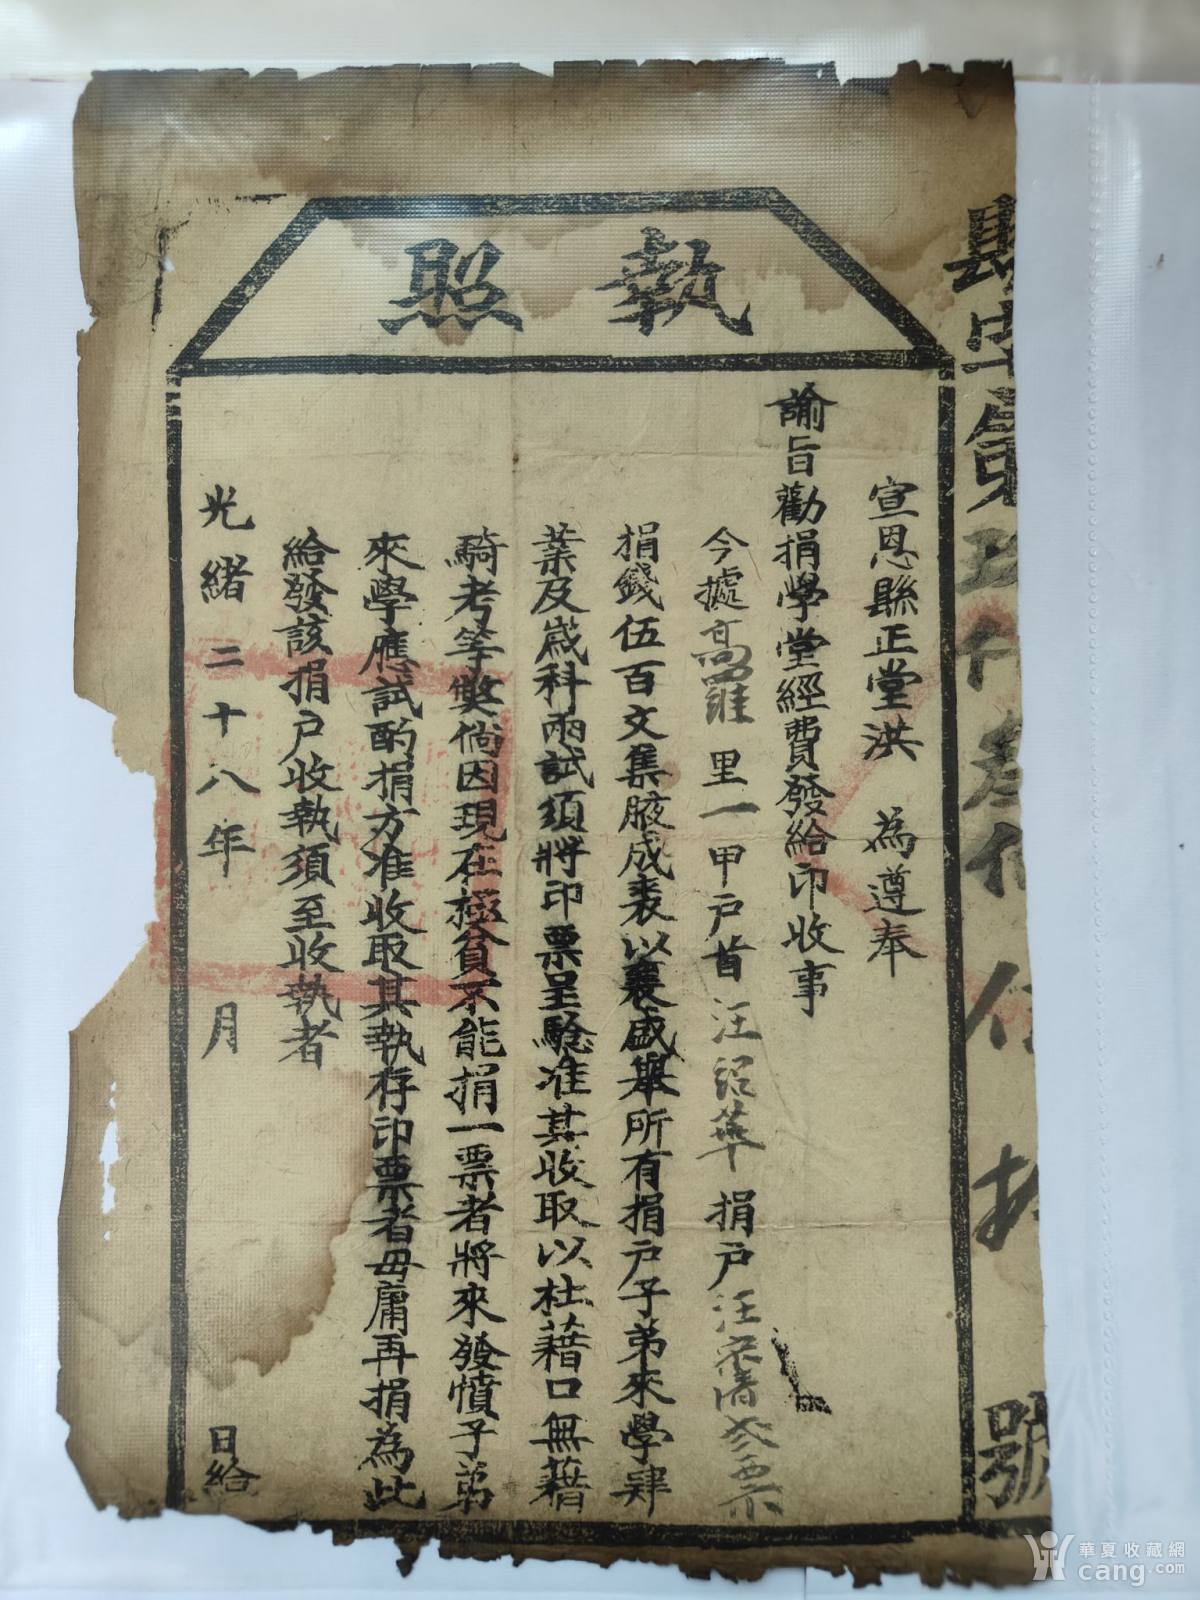 執照
縣字第 号 仟叁佰 拾 號
宣恩縣正堂洪 為遵奉
諭旨勸捐學堂經費發給印收事
今據高羅里一甲戶首汪紹華捐戶汪宗清叁票
捐錢伍百文集腋成裘以襄盛舉所有捐戶子弟來學肄
業及歲科兩試須將印票呈驗准其收取以杜藉口無藉
騎考等獘倘因現在極貧不能捐一票者將來發憤子弟
來學應試酌捐方准收取其執存印票者毋庸再捐為此
給發該捐戶收執須至收執者
光緒二十八年 月 日給
華夏收藏網
cang.com